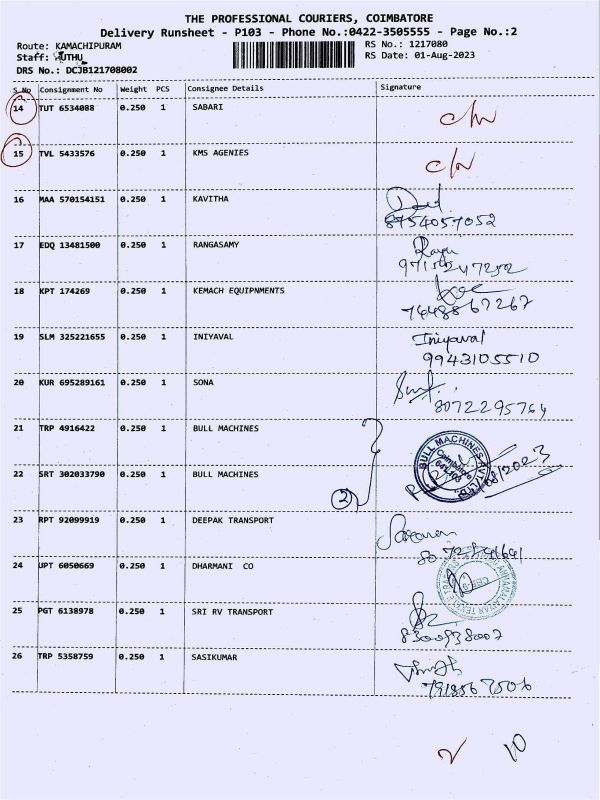 THE PROFESSIONAL COURIERS, COIMBATORE
Delivery Runsheet - P103 - Phone No.:0422-3505555 - Page No.:2
Route: KAMACHIPURAM RS No.: 1217080
Staff: MUTHU RS Date: 01-Aug-2023
DRS No.: DCJB121708002
S No Consignment No Weight PCS Consignee Details Signature
14 TUT 6534088 0.250 1 SABARI
15 TVL 5433576 0.250 1 KMS AGENIES
16 MAA 570154151 0.250 1 KAVITHA
8754057052
17 EDQ 13481500 0.250 1 RANGASAMY
18 KPT 174269 0.250 1 KEMACH EQUIPNMENTS
7448867267
19 SLM 325221655 0.250 1 INIYAVAL Iniyaval
9943105510
20 KUR 695289161 0.250 1 SONA
8072295764
21 TRP 4916422 0.250 1 BULL MACHINES
BULL MACHINES PVT LTD
22 SRT 302033790 0.250 1 BULL MACHINES
2
23 RPT 92099919 0.250 1 DEEPAK TRANSPORT
24 UPT 6050669 0.250 1 DHARMANI CO
25 PGT 6138978 0.250 1 SRI RV TRANSPORT
8300938007
26 TRP 5358759 0.250 1 SASIKUMAR
2 10